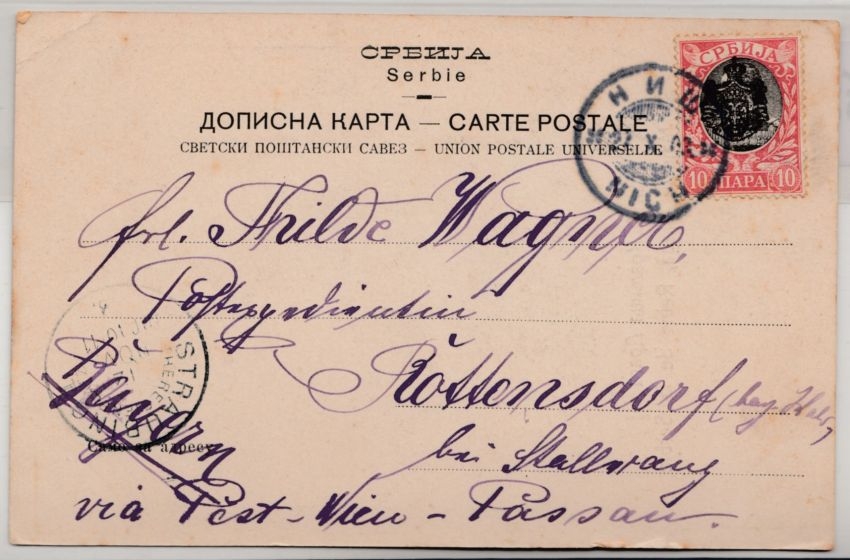 СРБИЈА
Serbie
ДОПИСНА КАРТА — CARTE POSTALE
СВЕТСКИ ПОШТАНСКИ САВЕЗ - UNION POSTALE UNIVERSELLE
СРБИЈА
10 ПАРА 10
НИШ
NICH
frl. Thilde Wagner,
Postexpedientin
Röttensdorf (bay. Wald)
Bayern
bei Stallwang
STRAUBING
Само за адресу
via Pest - Wien - Passau.